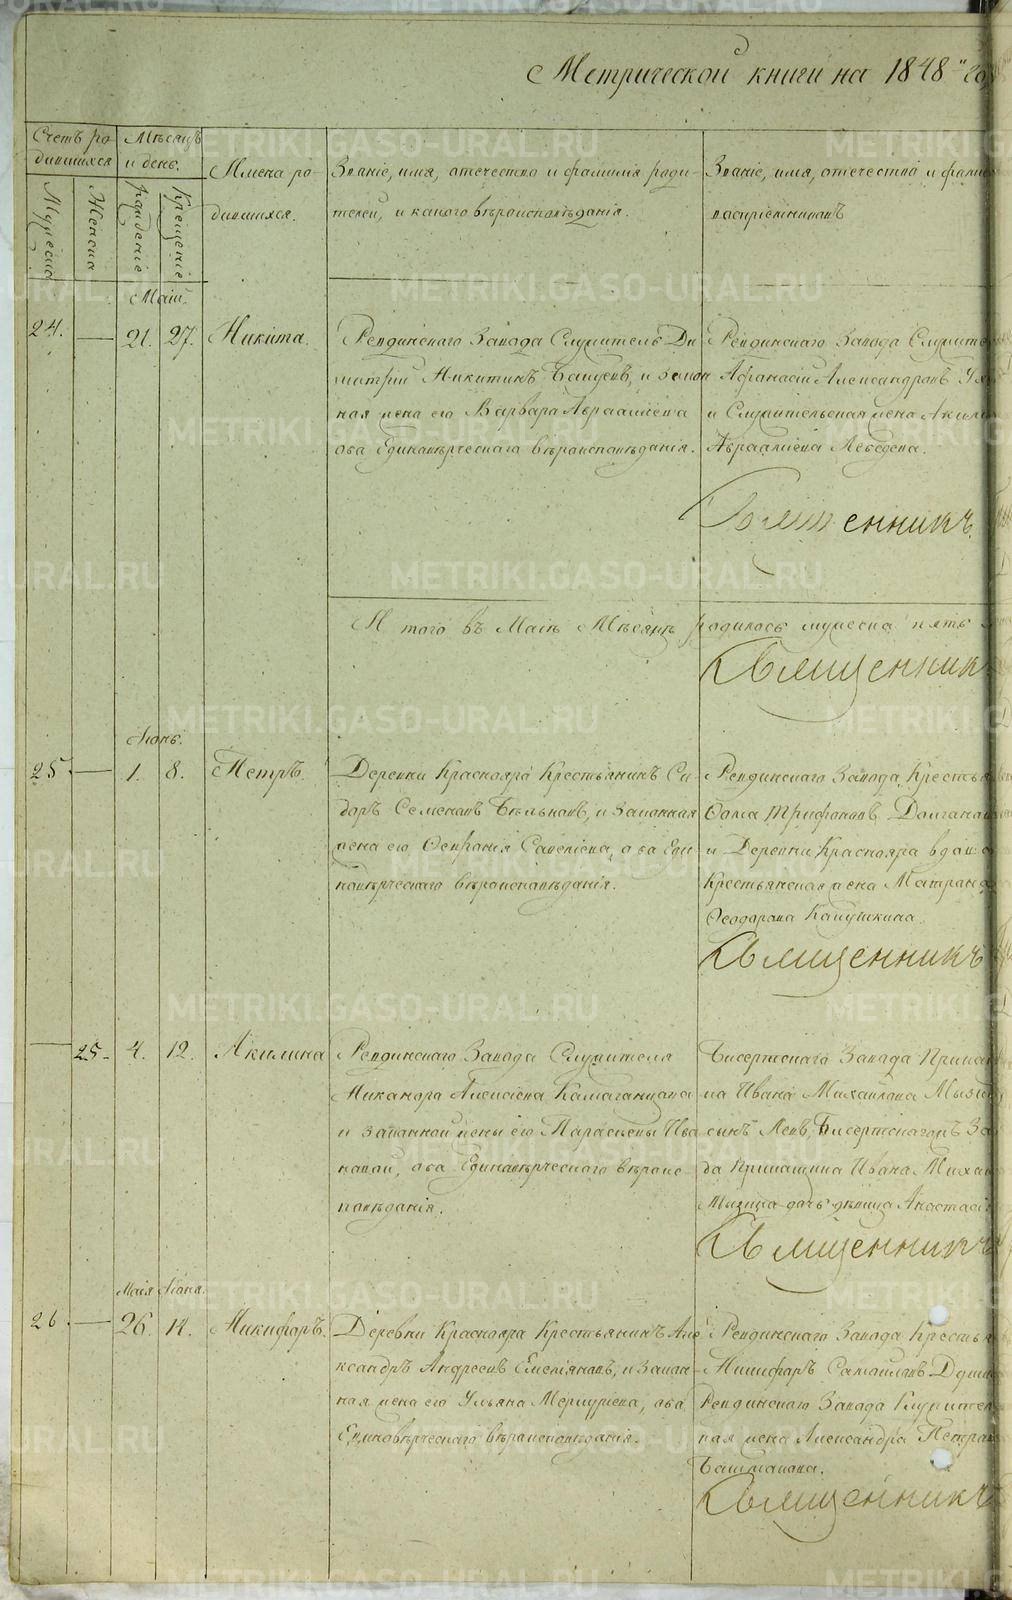 Метрической книги на 1848 го
Счетъ ро-
дившихся
Мѣсяцъ
и день.
Имена ро-
дившихся.
Званіе, имя, отечество и фамилія роди-
телей, и какого вѣроисповѣданія.
Званіе, имя, отечество и фами
воспріемниковъ
Мужеска
Женска
рожденіе
Крещеніе
Маій.
24. — 21. 27. Никита.
Ревдинскаго Завода Служитель Ди-
митрій Никитинъ и закон
ная жена его Варвара Авраамиева
оба Единовѣрческаго вѣроисповѣданія.
Ревдинскаго Завода Служите
Афанасій Александровъ
и Служительская жена Акили
Авраамиева Лебедева.
Священникъ
И того въ Маіѣ Мѣсяцѣ родилось мужеска пять
Священник
Іюнь.
25. — 1. 8. Петръ.
Деревни Краснояра Крестьянинъ Си-
доръ Семеновъ Бѣльковъ, и законная
жена его Евфросинія Савелиева, оба Еди-
новѣрческаго вѣроисповѣданія.
Ревдинскаго Завода Крестья
Ѳома Трифоновъ
и Деревни Краснояра вдова
Крестьянская жена Матрона
Ѳеодорова
Священникъ
— 25. 4. 12. Акилина
Ревдинскаго Завода Служителя
Никандра Алексіева
и законной жены его Параскевы Ива
новой, оба Единовѣрческаго вѣроис-
повѣданія.
Бисертскаго Завода Прикащи
ка Ивана Михаилова
сынъ Левъ, Бисертскагожъ За
да Прикащика Ивана Миха
дочь дѣвица Анастасі
Священникъ
Маія Іюня.
26. — 26. 14. Никифоръ.
Деревни Краснояра Крестьянинъ Але
ксандръ Андреевъ Емельяновъ, и закон-
ная жена его Ульяна Меркуриева, оба
Единовѣрческаго вѣроисповѣданія.
Ревдинскаго Завода Крестья
Никифоръ Самойловъ
Ревдинскаго Завода Служител
ная жена Александра Петров
Башмакова.
Священникъ
METRIKI.GASO-URAL.RU